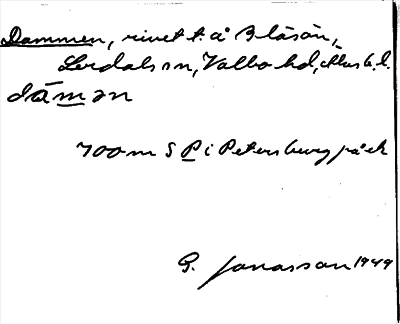 Dammen, rivet t. å Blåsön,
Lerdals sn, Valbo hd, Älvs b. l.
dàmən
700 m S P i Petersburg på ek
G. Jonasson 1949